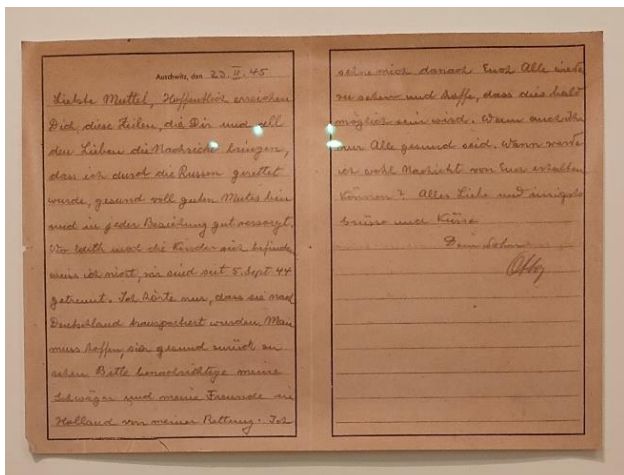 Auschwitz, den 23. II. 45
Liebste Mutter, Hoffentlich erreichen
Dich diese Zeilen, die Dir und all
den Lieben die Nachricht bringen,
dass ich durch die Russen gerettet
wurde, gesund voll guten Mutes bin
und in jeder Beziehung gut versorgt.
Wo Edith und die Kinder sich befinden
weiss ich nicht, wir sind seit 5. Sept 44
getrennt. Ich hörte nur, dass sie nach
Deutschland transportiert wurden. Man
muss hoffen, sie gesund zurück zu
sehen Bitte benachrichtige meine
Schwäger und meine Freunde in
Holland von meiner Rettung. Ich
sehne mich danach Euch Alle wieder
zu sehen und hoffe, dass dies bald
möglich sein wird. Wenn auch Ihr
nur Alle gesund seid. Wann werde
ich wohl Nachricht von Euch erhalten
können? Alles Liebe und innigste
Grüsse und Küsse
Dein Sohn
Otto